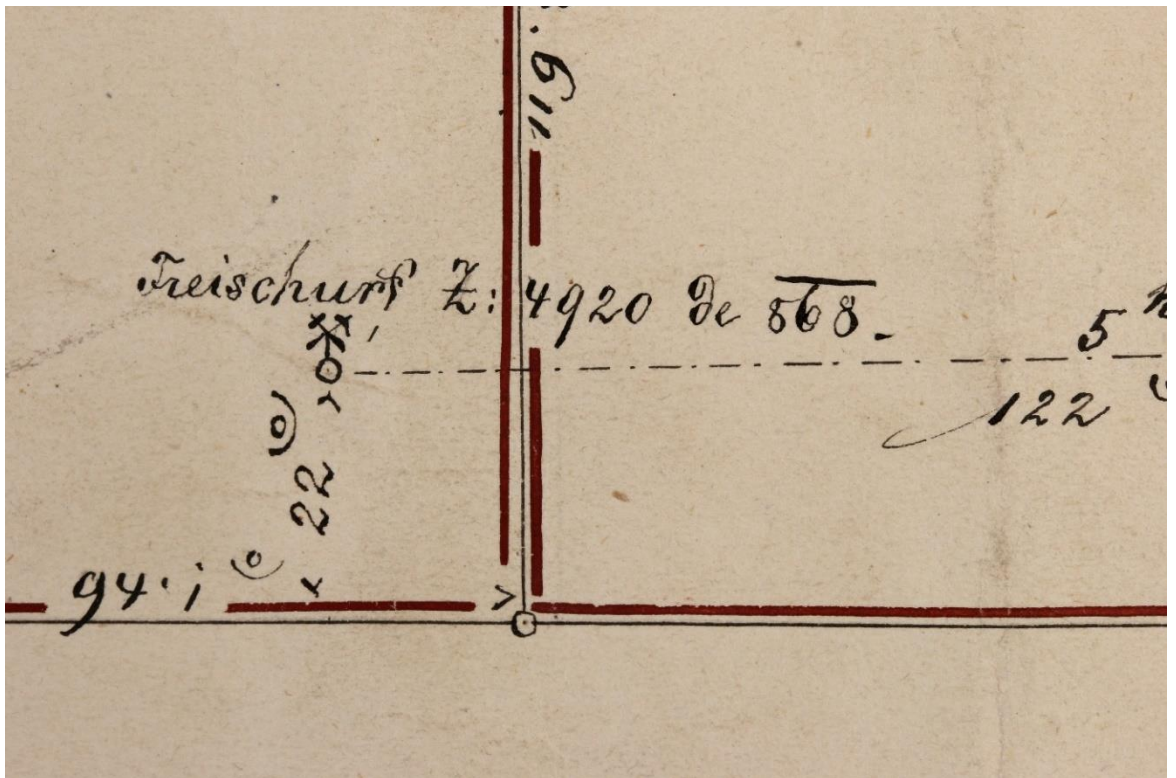 Freischurf Z: 4920 de 868.
5
122
22
94·i